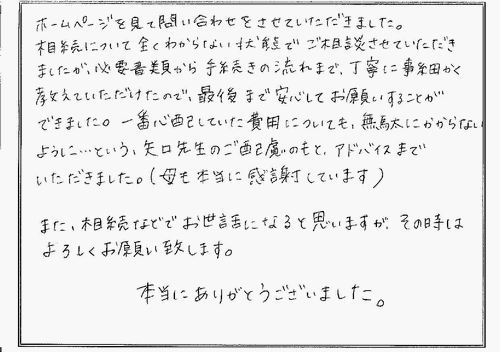 ホームページを見て問い合わせをさせていただきました。
相続について全くわからない状態でご相談させていただき
ましたが、必要書類から手続きの流れまで、丁寧に事細かく
教えていただけたので、最後まで安心してお願いすることが
できました。一番心配していた費用についても、無駄にかからない
ように…という、矢口先生のご配慮のもと、アドバイスまで
いただきました。（母も本当に感謝しています）
また、相続などでお世話になると思いますが、その時は
よろしくお願い致します。
本当にありがとうございました。